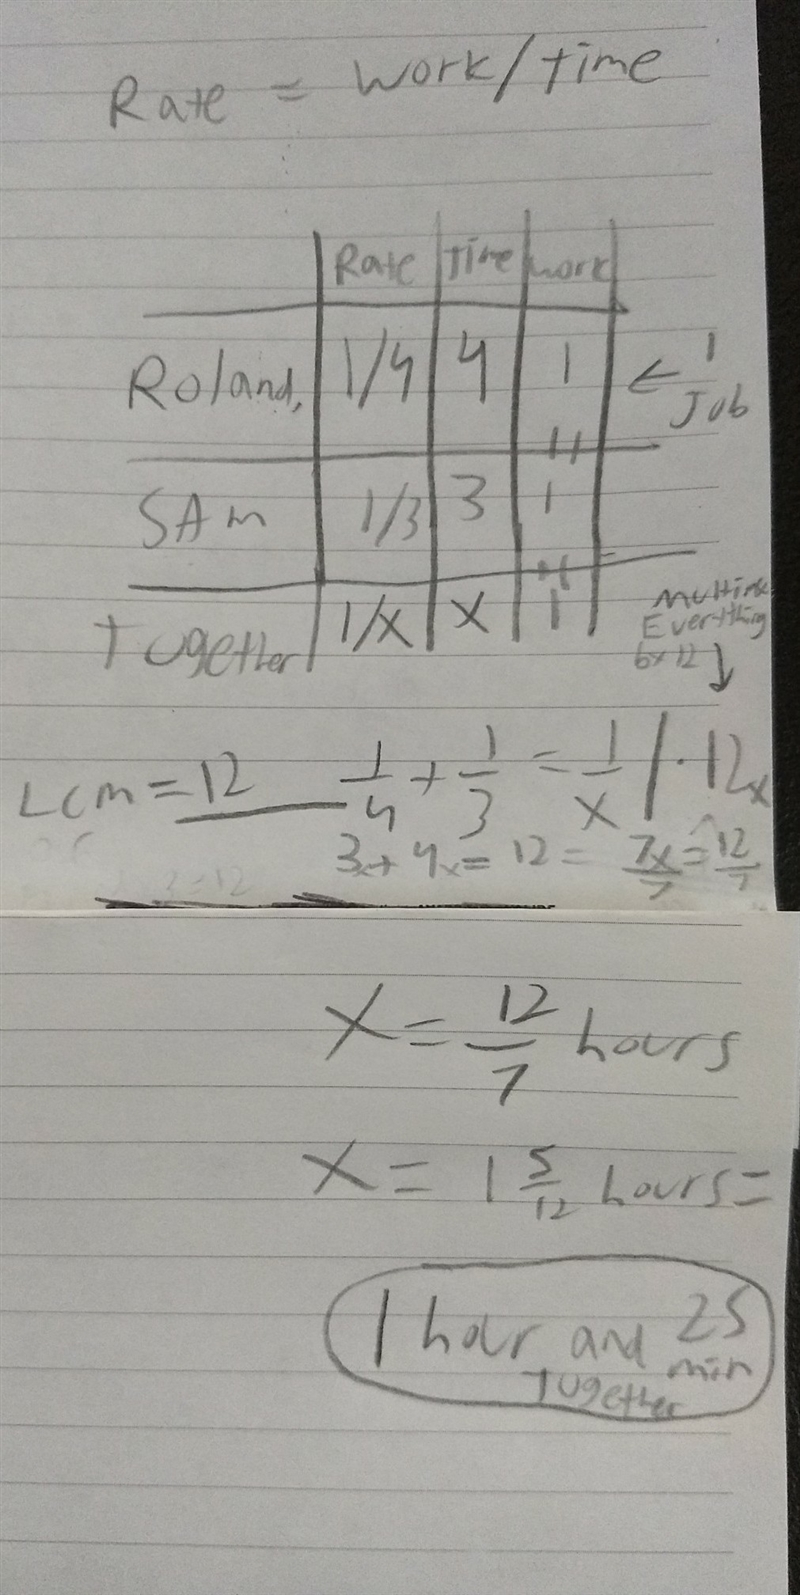 Rate = Work/Time
Rate Time Work
Roland, 1/4 4 1 ← 1 Job
SAm 1/3 3 1
Together 1/X X 1
Everything
by 12 ↓
LCM = 12 1/4 + 1/3 = 1/X / · 12x
3x + 4x = 12 = 7x/7 = 12/7
X = 12/7 hours
X = 1 5/12 hours =
1 hour and 25 min
Together